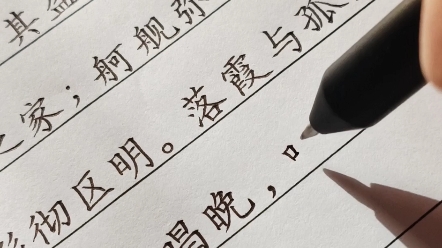 其
之家；舸舰弥
彻区明。落霞与孤
唱晚，口